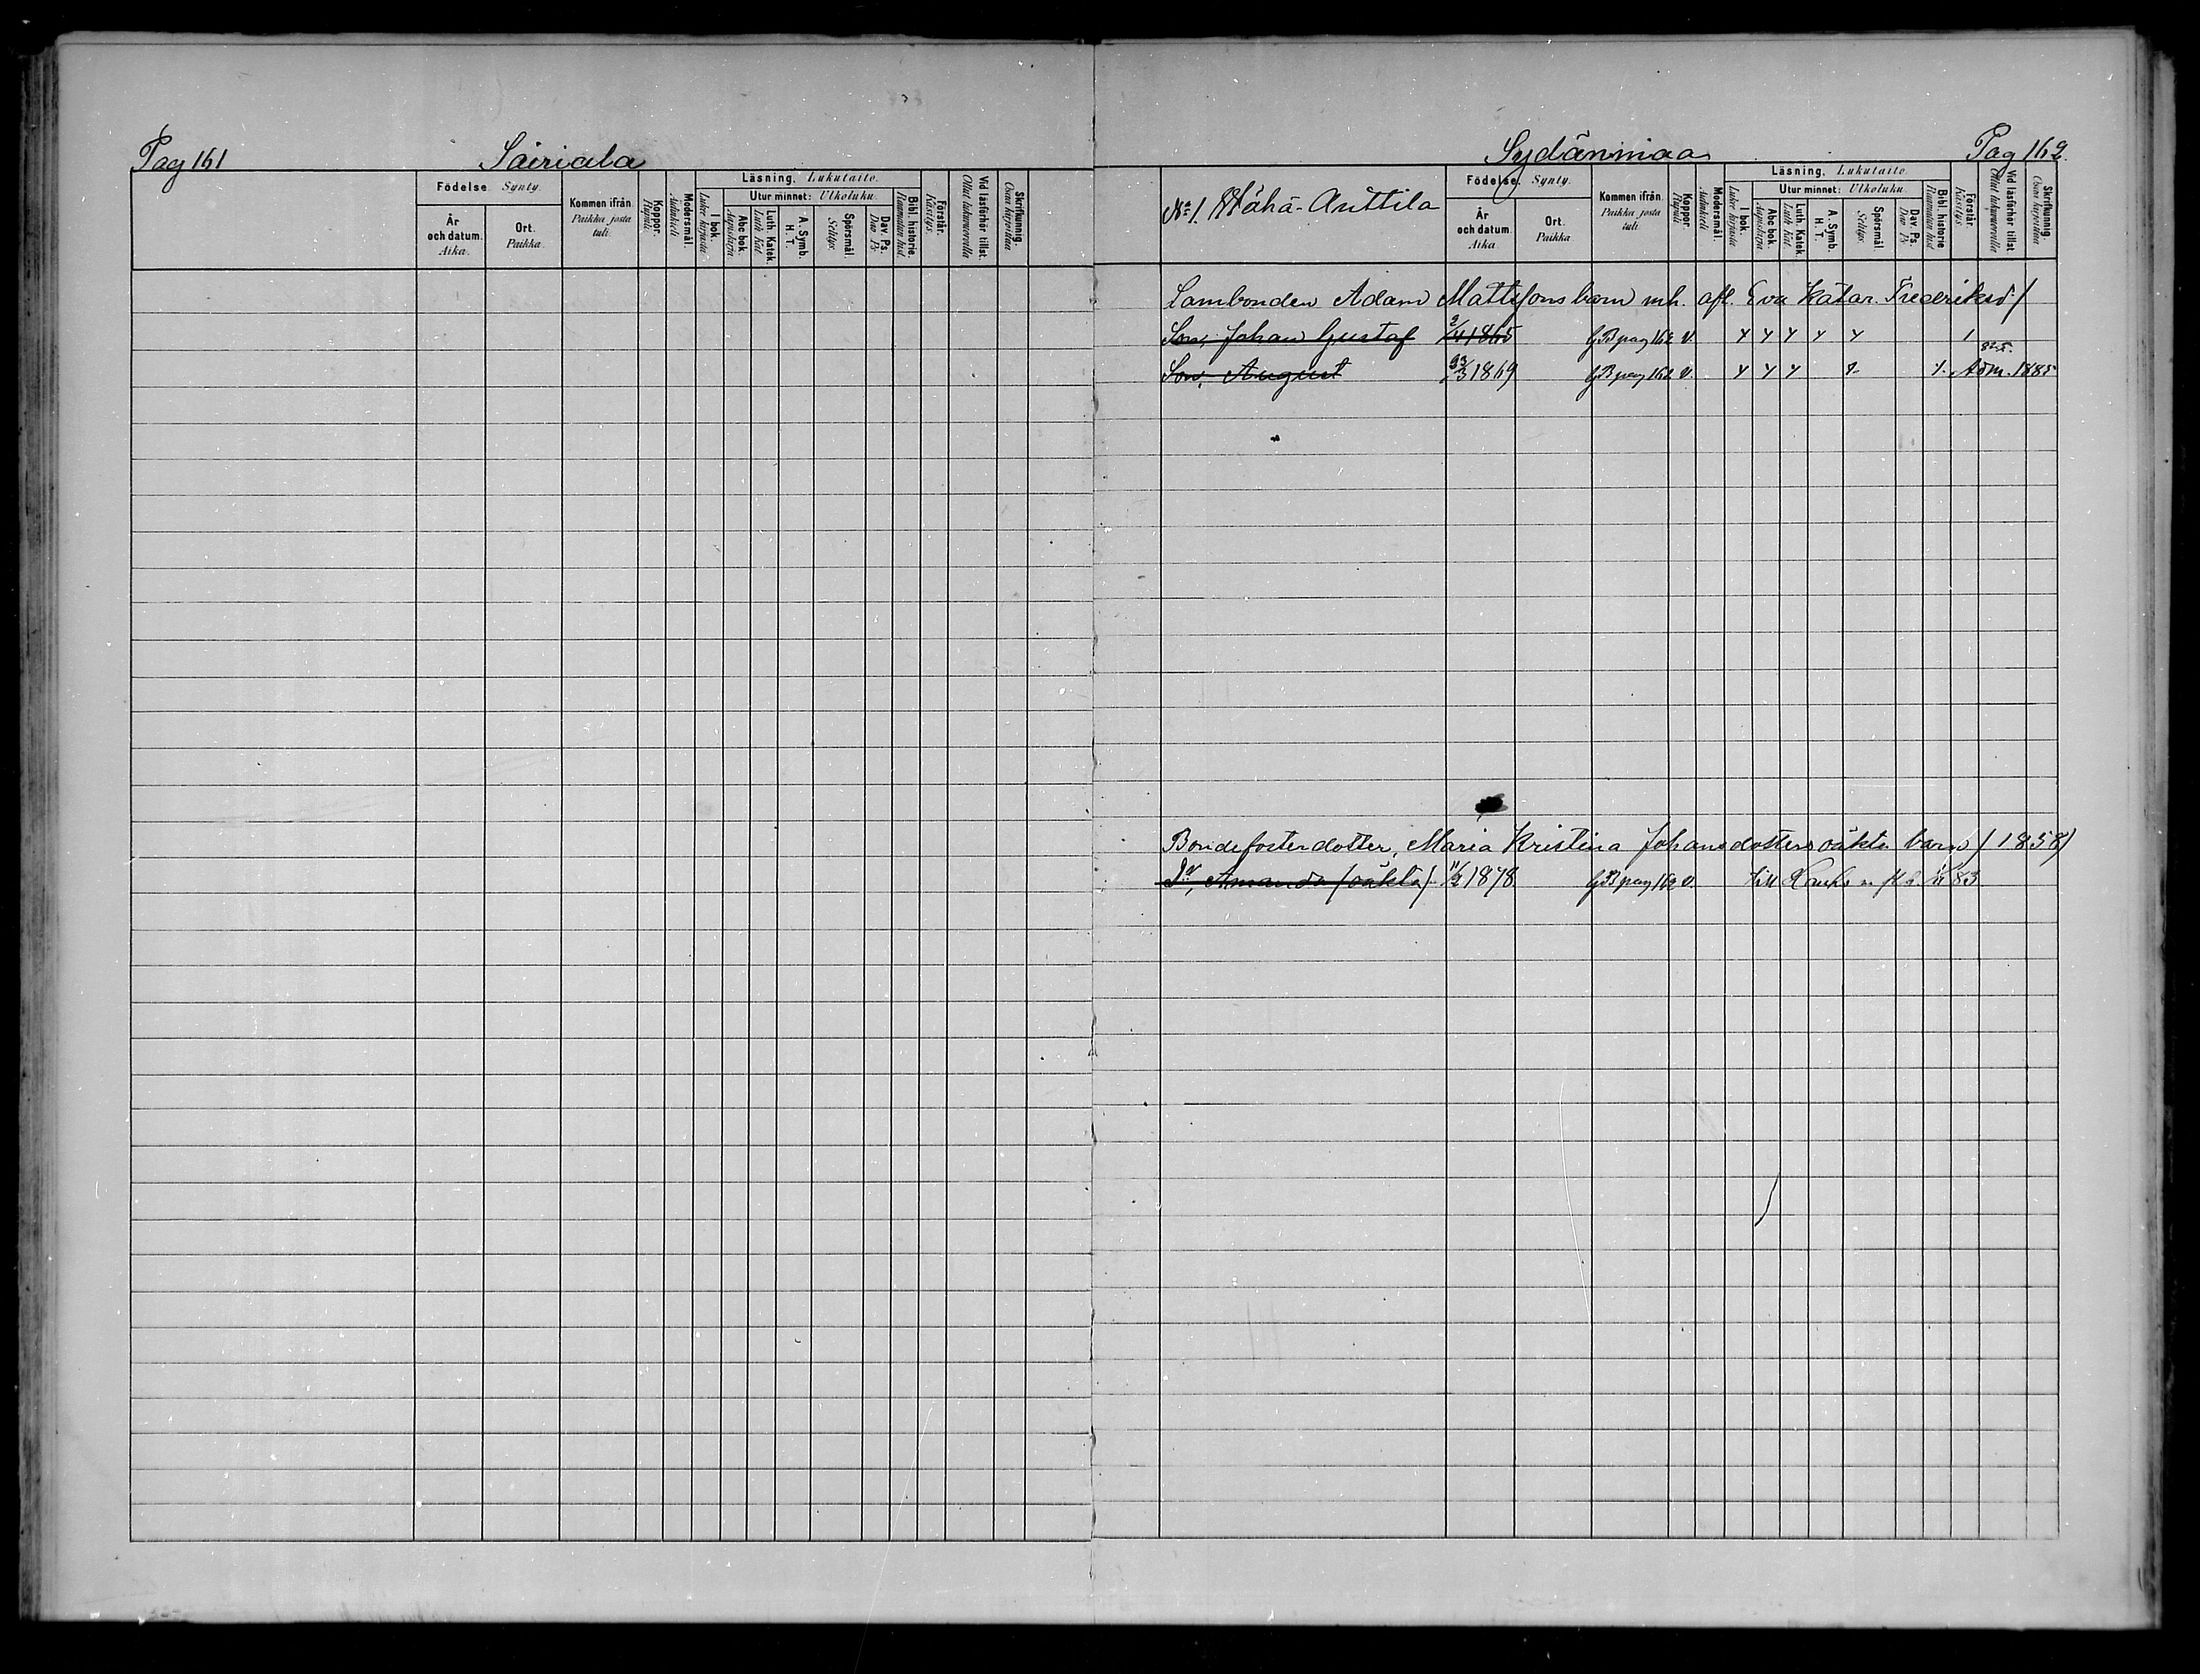 Pag 161 Sairiala
Födelse. Synty.
År och datum. Aika.
Ort. Paikka.
Kommen ifrån. Paikka josta tuli.
Koppor. Rupuli.
Modersmål. Äidinkieli
Läsning. Lukutaito.
I bok. Lukee kirjasta
Utur minnet: Ulkoluku.
Abc bok. Aapiskirja
Luth. Katek. Luth. Kat.
A. Symb. H. T.
Spörsmål. Selitys.
Dav. Ps. Dav. Ps.
Bibl. historie. Raamatun hist.
Förstår. Käsitys.
Vid läsförhör tillst. Ollut lukuvuorolla
Skrifkunnig. Osaa kirjoittaa
Sydänmaa Pag 162.
No 1. Wähä-Anttila
Födelse. Synty.
År och datum. Aika.
Ort. Paikka
Kommen ifrån. Paikka josta tuli.
Koppor. Rupuli
Modersmål. Äidinkieli
Läsning. Lukutaito.
I bok. Lukee kirjasta
Utur minnet: Ulkoluku.
Abc bok. Aapiskirja
Luth. Katek. Luth. Kat.
A. Symb. H. T.
Spörsmål. Selitys.
Dav. Ps. Dav. Ps.
Bibl. historie Raamatun hist.
Förstår. Käsitys.
Vid läsförhör tillst. Ollut lukuvuorolla
Skrifkunnig. Osaa kirjoittaa
Sambonden Adam Mattssons barn mh. afl. Eva Katar. Fredriksd/
Son, Johan Gustaf 2/4 1865 GB pag 162 v.
Son, August 23/3 1869 GB pag 162 v. Adm. 1885
Bondefosterdotter, Maria Kristina Johansdotters oäkta barn / 1858/
Dr, Amanda /oäkta/ 11/2 1878 GB pag 162 v. till 83